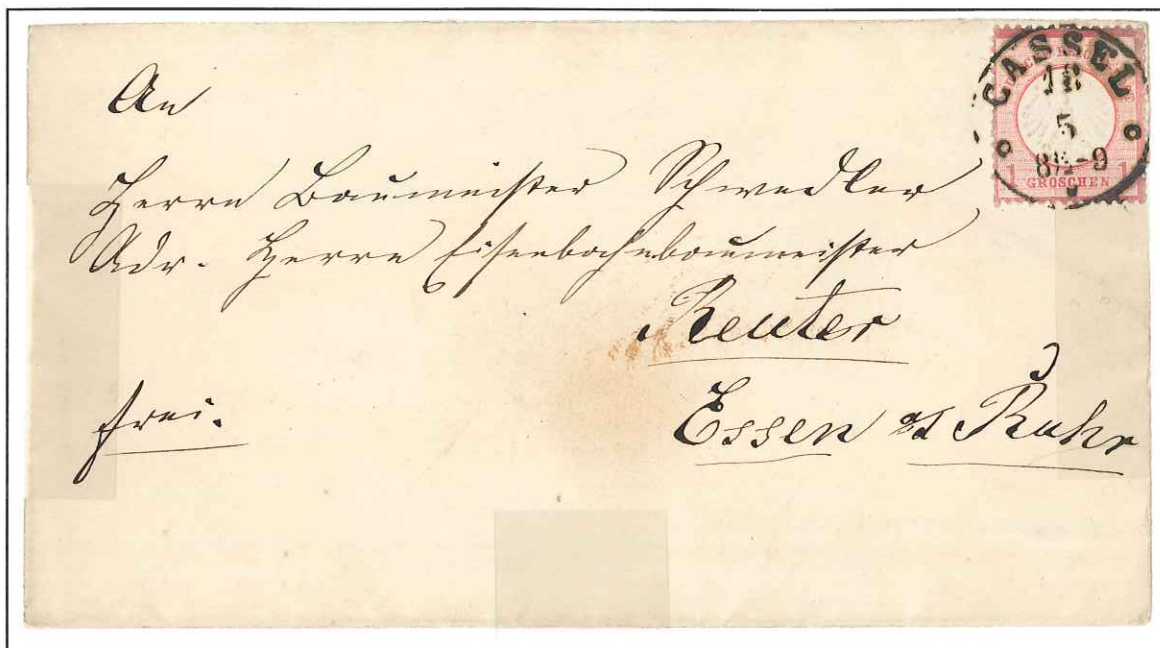 An
Herrn Baumeister Schwedler
Adr. Herrn Eisenbahnbaumeister
Reuter
frei.
Essen a/d Ruhr
CASSEL
18
5
8½-9
1 GROSCHEN 1